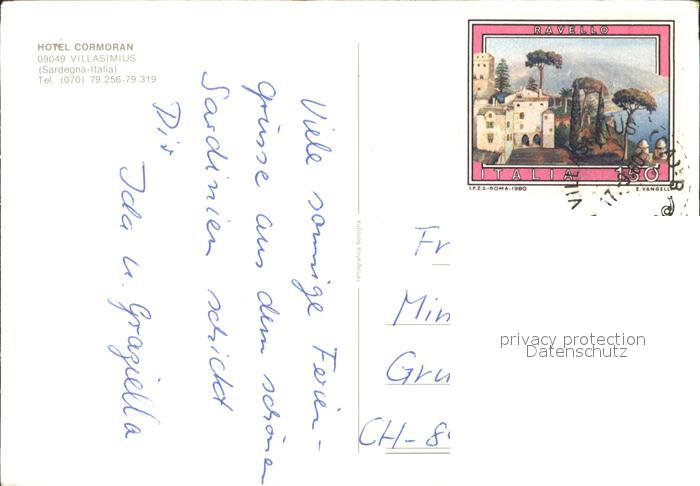 HOTEL CORMORAN
09049 VILLASIMIUS
(Sardegna-Italia)
Tel. (070) 79.256-79.319
Viele sonnige Ferien-
grüsse aus dem schönen
Sardinien schickt
Dir
Ida u. Graziella
RAVELLO
ITALIA
I.P.Z.S.-ROMA-1980
E. VANGELLI
Fr
Min
Gru
CH-84
privacy protection
Datenschutz